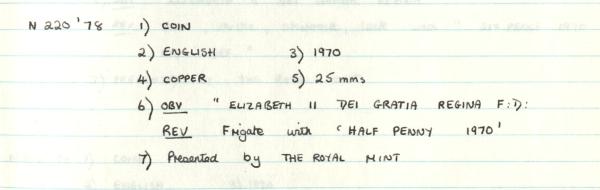 N 220 '78 1) COIN
2) ENGLISH 3) 1970
4) COPPER 5) 25 mms
6) OBV " ELIZABETH II DEI GRATIA REGINA F:D:
REV Frigate with 'HALF PENNY 1970'
7) Presented by THE ROYAL MINT